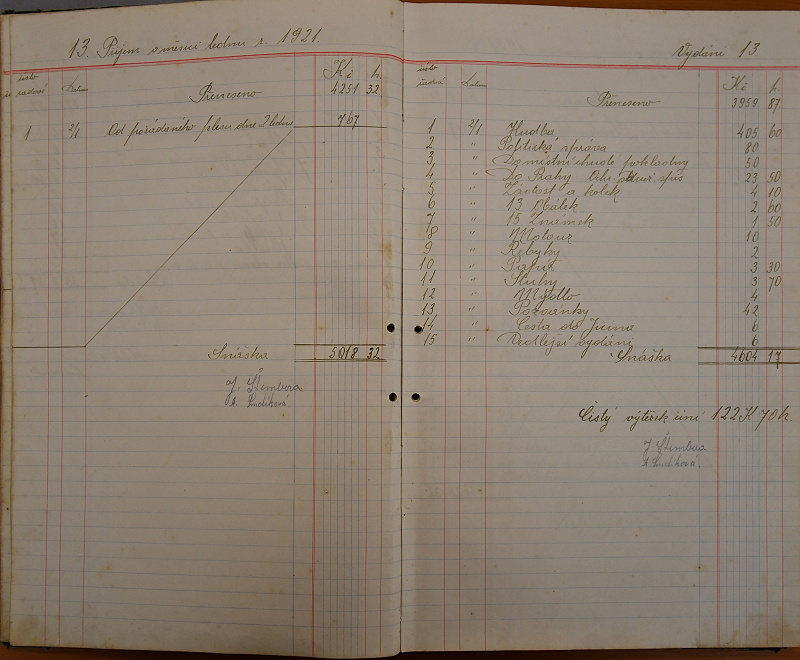 13. Příjem v měsíci lednu r. 1921.
číslo řadové Datum Kč h
Přeneseno 4251 32
1 2/1 Od pořádaného plesu dne 2 ledna 767
Snáška 5018 32
J. Štembera
Vydání 13
číslo řadové Datum Kč h
Přeneseno 3959 87
1 2/1 Hudba 405 60
2 " Politická správa 80
3 " Do místní chudé pokladny 50
4 " Do Prahy Ochr. 23 50
5 " Žádost a kolek 4 10
6 " 13 Obálek 2 60
7 " 15 Známek 1 50
8 " Motouz 10
9 " Řebyky 2
10 " Papír 3 30
11 " Stuhy 3 70
12 " Mýdlo 4
13 " Pozvánky 42
14 " Cesta do Jičína 6
15 " Vedlejší vydání 6
Snáška 4604 17
Čistý výtěžek činí 122 K 70 h.
J. Štembera